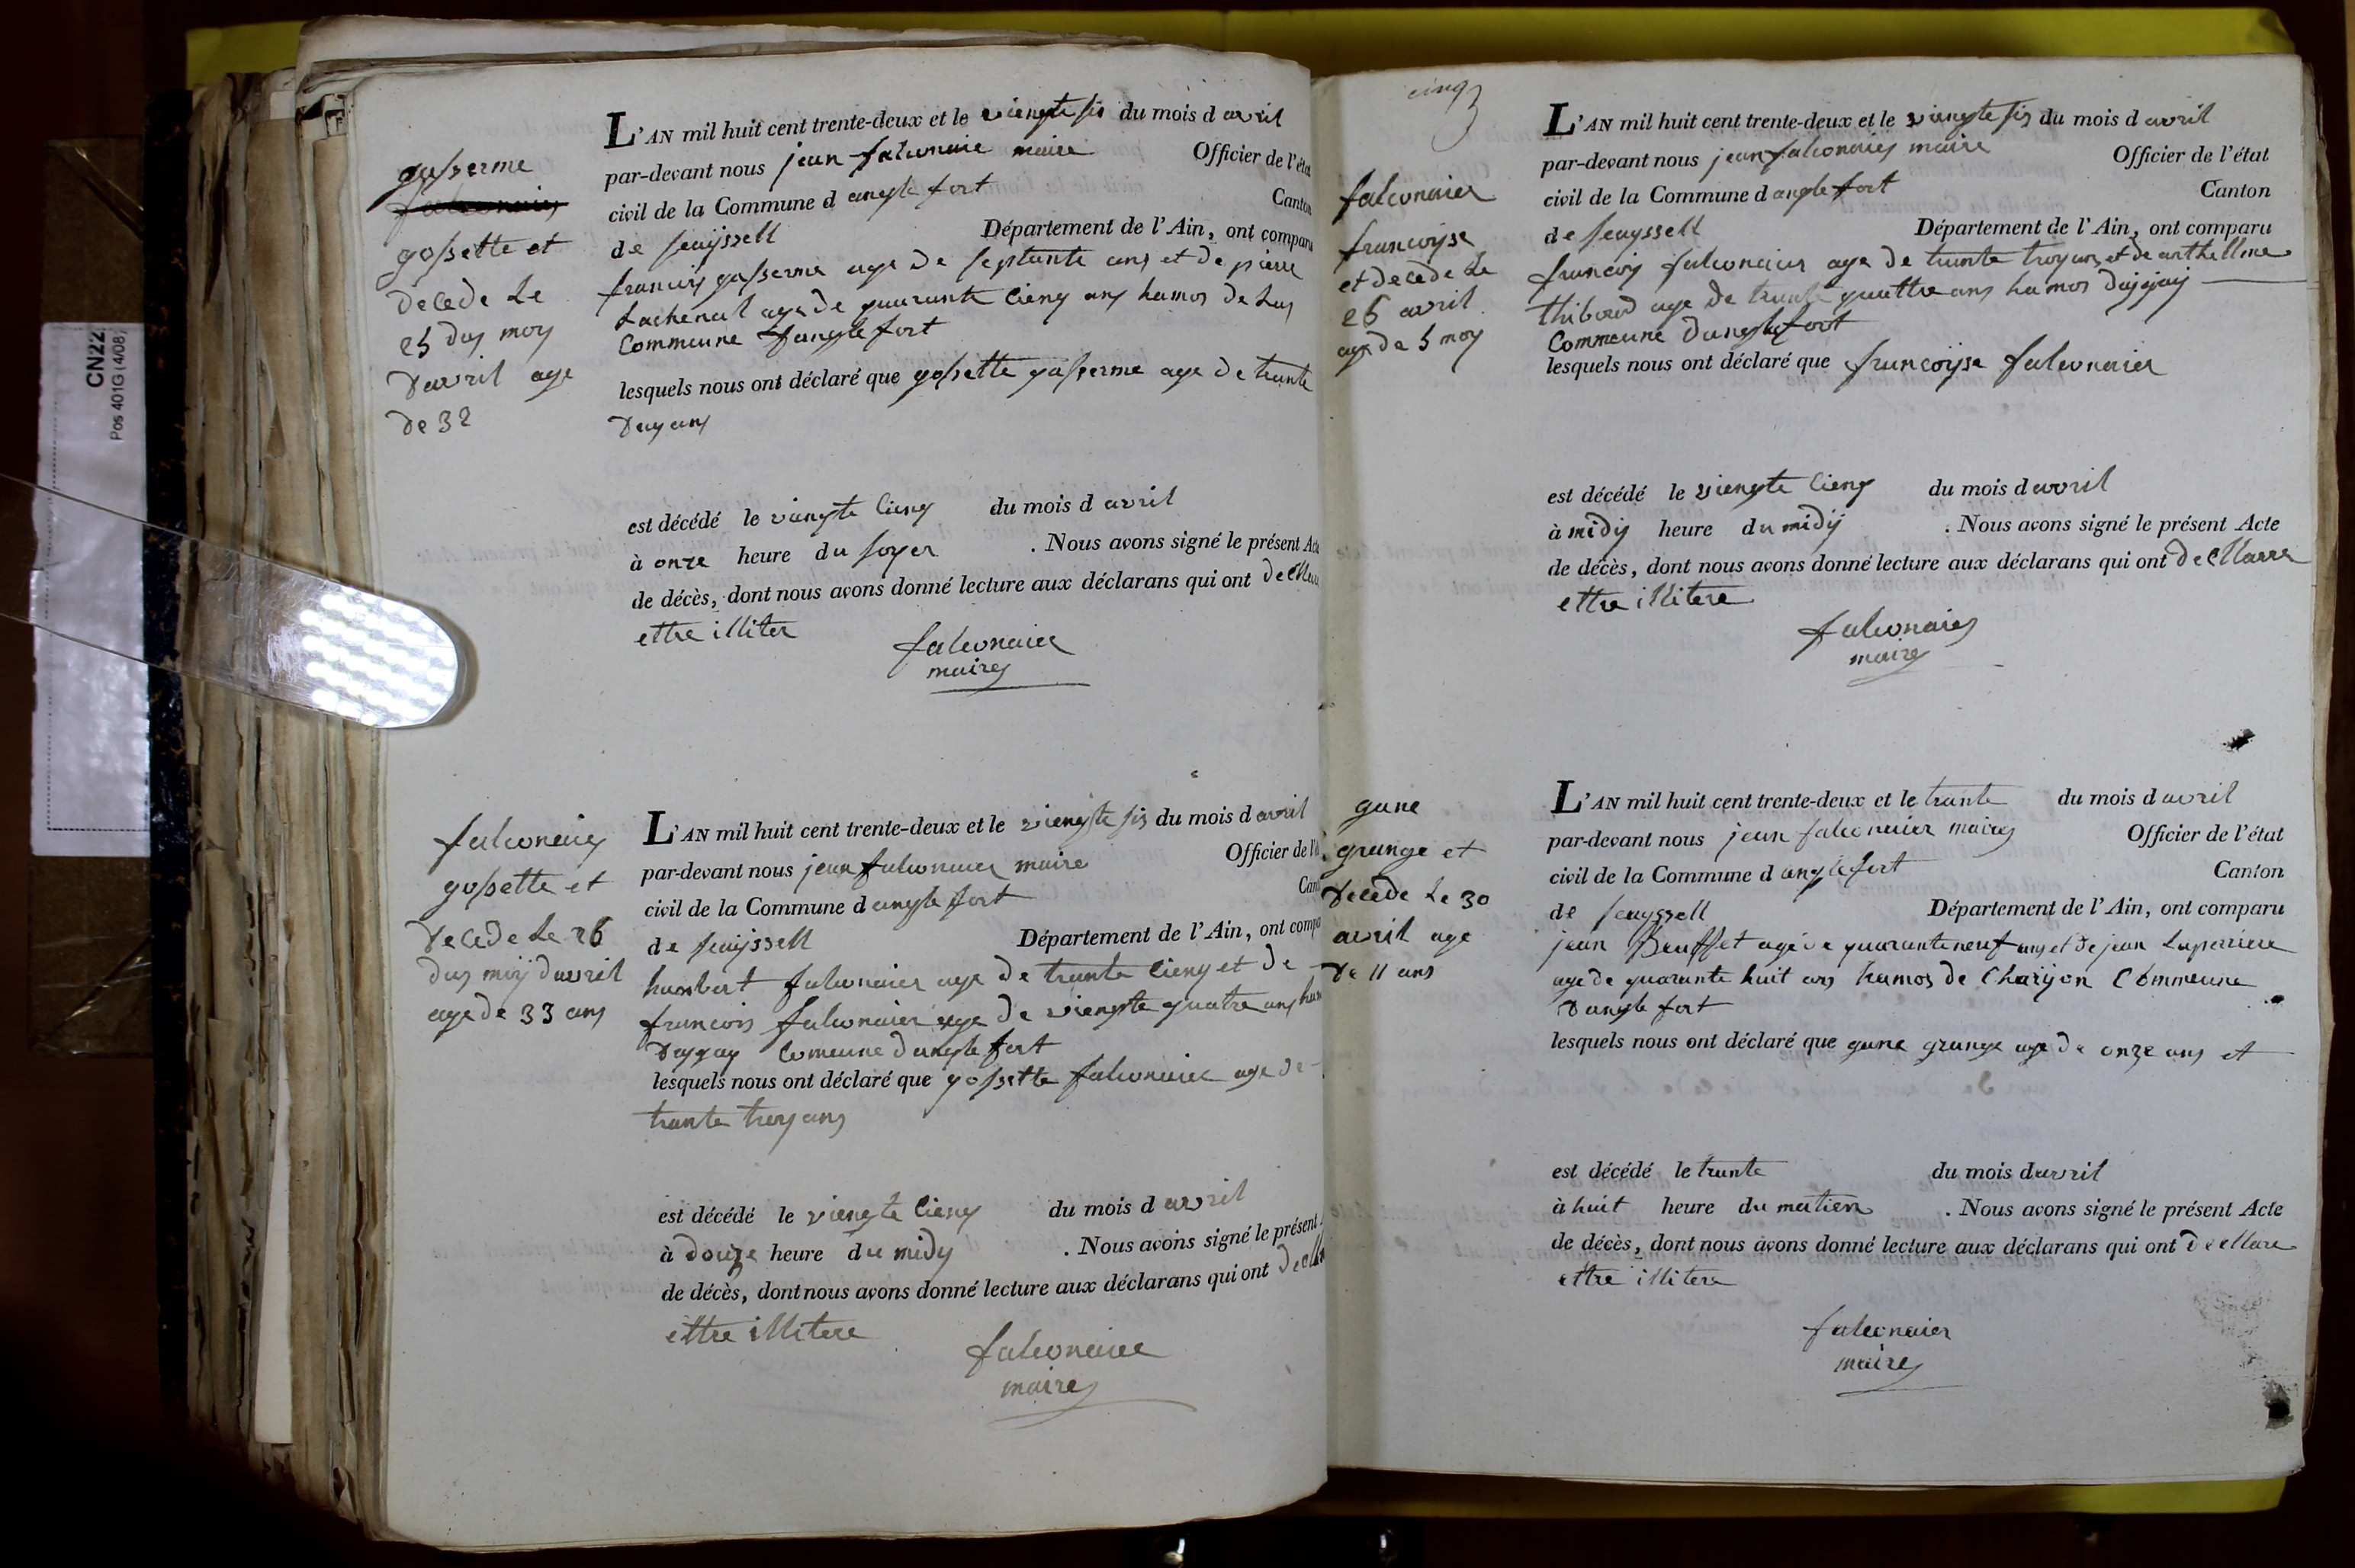 CN22
Pos 401G (4/08)
gasserme
gossette et
decede Le
25 duy moy
davril age
de 32
L'AN mil huit cent trente-deux et le viengte six du mois d avril
par-devant nous jean falconaie maire Officier de l'état
civil de la Commune d angle fort Canton
de seuyssell Département de l'Ain, ont comparu
francois gasserme age de septante ans et de pierre
Lachenal age de quarante cieng ans hamos de Luy
Commeune danglefort
lesquels nous ont déclaré que gossette gasserme age de trante
deuy ans
est décédé le viengte cieng du mois d avril
à onze heure du soyer . Nous avons signé le présent Acte
de décès, dont nous avons donné lecture aux déclarans qui ont
ettre illiter
falconaier
maires
falconaiy
gossette et
decede Le 26
duy moy davril
age de 33 ans
L'AN mil huit cent trente-deux et le viengte six du mois d avril
par-devant nous jean falconaier maire Officier de l'é
civil de la Commune d angle fort Cant
de seuyssell Département de l'Ain, ont compa
humbert falconaier age de trante cieng et de
francois falconaier age de viengte quatre ans ham
deygay Comeune dangle fort
lesquels nous ont déclaré que gossette falconaier age de
trante troy ans
est décédé le viengte cieng du mois d avril
à douze heure du midy . Nous avons signé le présent
de décès, dont nous avons donné lecture aux déclarans qui ont
ettre illitere
falconaier
maires
cinq
falconaier
francoyse
et decede Le
26 avril
age de 5 moy
L'AN mil huit cent trente-deux et le viengte six du mois d avril
par-devant nous jean falconaier maire Officier de l'état
civil de la Commune d angle fort Canton
de seuyssell Département de l'Ain, ont comparu
francois falconaier age de trante troy ans et de anthellme
thiboud age de trante quattre ans hamos deygay
Commeune danglefort
lesquels nous ont déclaré que francoyse falconaier
est décédé le viengte cieng du mois d avril
à midy heure du midy . Nous avons signé le présent Acte
de décès, dont nous avons donné lecture aux déclarans qui ont decllarre
ettre illitere
falconaier
maire
gune
grange et
decede Le 30
avril age
de 11 ans
L'AN mil huit cent trente-deux et le trante du mois d avril
par-devant nous jean falconaier maires Officier de l'état
civil de la Commune d angle fort Canton
de seuyssell Département de l'Ain, ont comparu
jean Beuffet age de quarante neuf ans et de jean Laperriere
age de quarante huit ans hamos de Chaiyon Commeune
dangle fort
lesquels nous ont déclaré que gune grange age de onze ans et
est décédé le trante du mois davril
à huit heure du matien . Nous avons signé le présent Acte
de décès, dont nous avons donné lecture aux déclarans qui ont decllare
ettre illitere
falconaier
maires